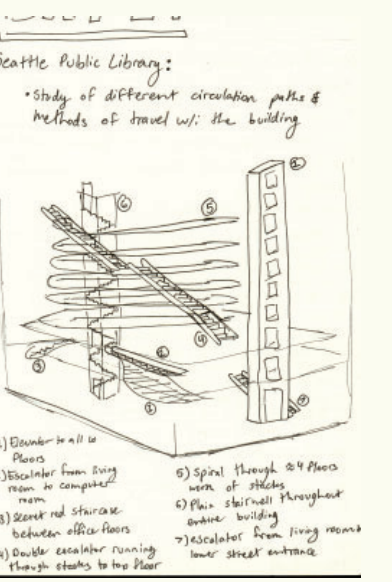 Seattle Public Library:
• Study of different circulation paths &
methods of travel w/i the building
①
⑥
⑤
④
③
②
⑦
1) Elevator to all 10
Floors
2) Escalator from living
room to computer
room
3) Secret red staircase
between office floors
4) Double escalator running
through stacks to top floor
5) Spiral through ≈4 floors
worn of stacks
6) Plain stairwell throughout
entire building
7) escalator from living room to
lower street entrance